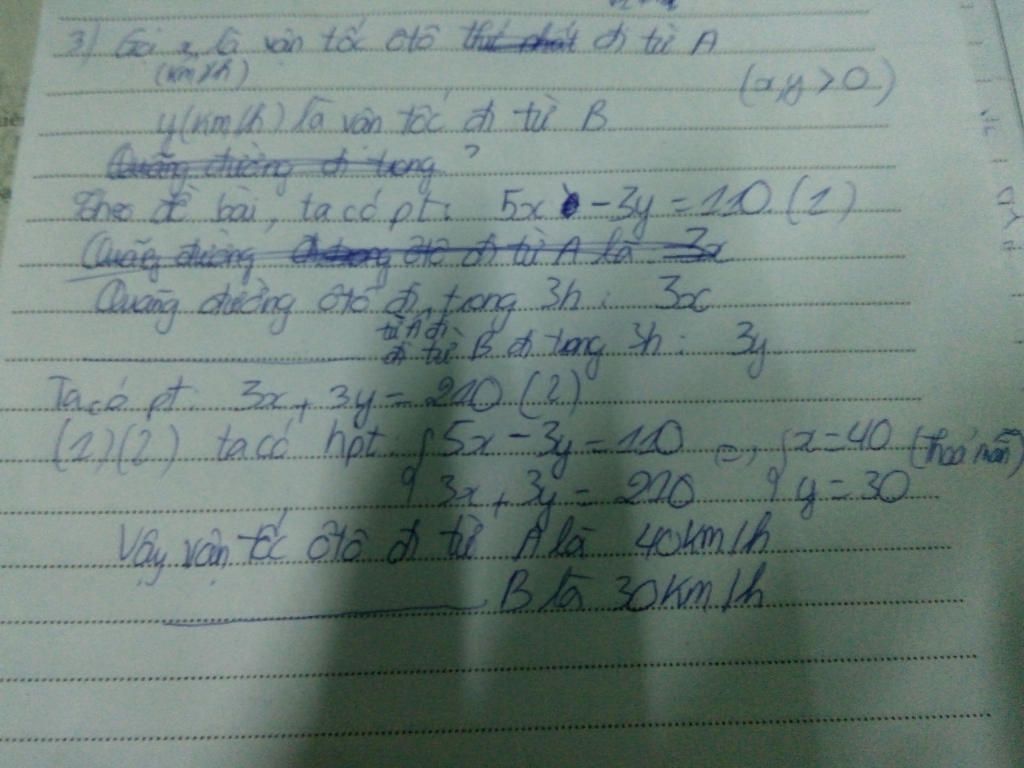 3) Gọi x là vận tốc ôtô thứ nhất đi từ A
(km/h)
(x,y > 0)
y(km/h) là vận tốc đi từ B
Quãng đường đi trong ?
Theo đề bài, ta có pt: 5x - 3y = 110 (1)
Quãng đường ôtô đi từ A là 3x
Quãng đường ôtô đi trong 3h : 3x
từ A đi
đi từ B đi trong 3h : 3y
Ta có pt: 3x + 3y = 210 (2)
(1)(2) ta có hpt: { 5x - 3y = 110 (=) { x = 40 (thoả mãn)
3x + 3y = 210 y = 30
Vậy vận tốc ôtô đi từ A là 40km/h
B là 30km/h